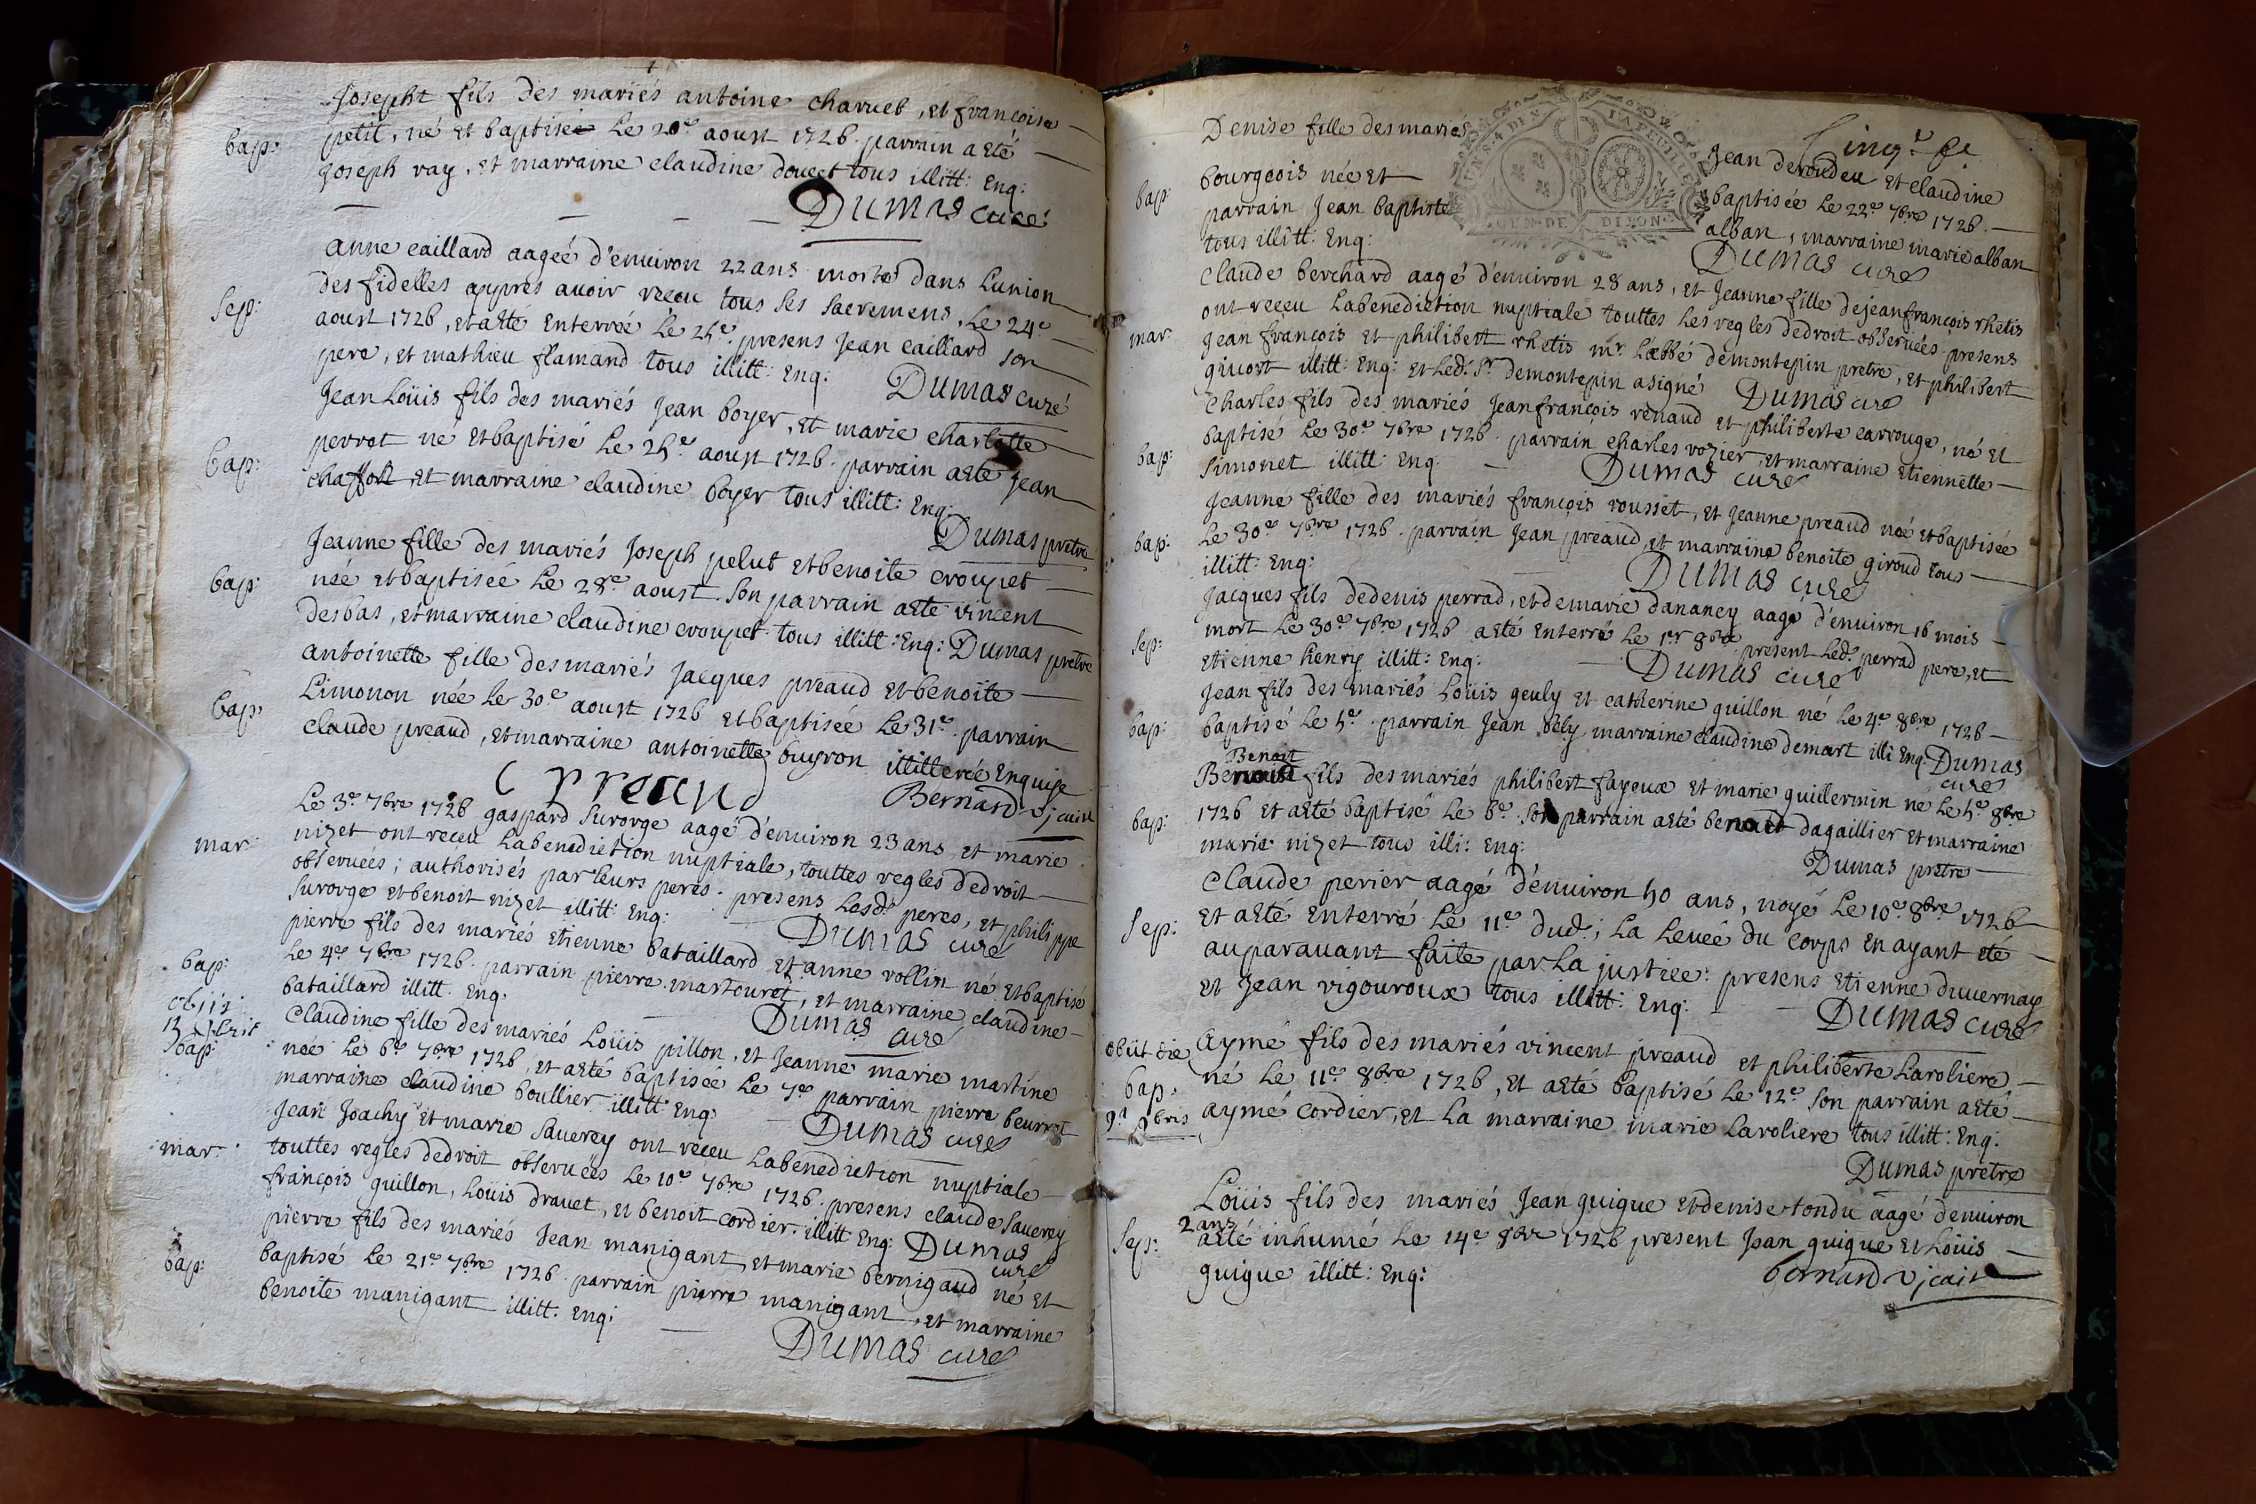 Josepht fils des mariés antoine charuet, et francoise
bap: petit, né et baptisee le 20e aoust 1726. parrain a eté
Joseph ray, et marraine claudine doucet tous illitt: Enq:
Dumas curé
anne caillard aagée d'enuiron 22 ans morte dans lunion
Sep: des fidelles appres auoir receu tous ses sacremens, le 24e
aoust 1726, et a eté enterrée le 25e. presens Jean caillard son
pere, et mathieu flamand tous illitt: Enq:
Dumas curé
Jean Loüis fils des mariés Jean boyer, et marie charlotte
bap: perrot né et baptisé le 25e. aoust 1726. parrain a eté Jean
chaffort, et marraine claudine boyer tous illitt: Enq:
Dumas prêtre
Jeanne fille des mariés Joseph pelut et benoite croupet
bap: née et baptisée le 28e aoust. son parrain a eté vincent
desbas, et marraine claudine croupet tous illitt: Enq: Dumas prêtre
antoinette fille des mariés Jacques preaud et benoite
bap: Limonon née le 30e aoust 1726 et baptisée le 31e. parrain
claude preaud, et marraine antoinette buyron illitterée Enquise
C preaud
Bernard vicaire
Le 3e 7bre 1726 gaspard surorge aagé d'enuiron 23 ans et marie
mar: nizet ont receu la benediction nuptiale, touttes regles de droit
obseruées; authorisés par leurs peres. presens lesd: peres, et philippe
surorge et benoit nizet illitt: Enq:
Dumas curé
pierre fils des mariés etienne bataillard et anne rollin né et baptisé
bap: le 4e 7bre 1726. parrain pierre martouret, et marraine claudine
bataillard illitt. Enq.
Dumas curé
Claudine fille des mariés Loüis pillon, et Jeanne marie martine
bap: née le 6e 7bre 1726, et a eté baptisée le 7e parrain pierre beurrot
marraine claudine boullier illitt Enq:
Dumas curé
Jean Joachy et marie sauerey ont receu la benediction nuptiale
mar: touttes regles de droit obseruées le 10e 7bre 1726. presens claude sauerey
françois guillon, Loüis drauet, et benoit cordier. illitt Enq: Dumas
curé
pierre fils des mariés Jean manigant, et marie bernigaud né et
bap: baptisé le 21e 7bre 1726. parrain pierre manigant, et marraine
benoite manigant illitt. Enq:
Dumas curé
Cinqe
GEN. DE DIJON
Denise fille des mariés Jean derondeu et claudine
bap: bourgeois née et baptisée le 22e 7bre 1726.
parrain Jean baptiste alban, marraine marie alban
tous illitt: Enq:
Dumas curé
Claude berchard aagé d'enuiron 28 ans, et Jeanne fille de jean françois rhetis
mar: ont receu la benediction nuptiale touttes les regles de droit obseruées. presens
Jean françois et philibert rhetis mr. Labbé demontepin prêtre, et philibert
giuort illitt: Enq: et led: Sr. demontepin a signé Dumas curé
Charles fils des mariés Jean françois renaud et philiberte carrouge, né et
bap: baptisé le 30e 7bre 1726. parrain charles rozier, et marraine etiennette
simonet illitt: Enq.
Dumas curé
Jeanne fille des mariés françois rousset, et Jeanne preaud née et baptisée
bap: le 30e 7bre 1726. parrain Jean preaud, et marraine benoite giroud tous
illitt: Enq:
Dumas curé
Jacques fils de denis perrad, et de marie dananey aagé d'enuiron 16 mois
Sep: mort le 30e 7bre 1726 a eté enterré le 1er 8bre present led: perrad pere, et
etienne henry illitt: Enq:
Dumas curé
Jean fils des mariés Loüis geuly et catherine guillon né le 4e 8bre 1726
bap: baptisé le 5e. parrain Jean bely marraine claudine demart illi Enq. Dumas
curé
Benoit
Benoist fils des mariés philibert fayeux et marie guillermin né le 5e 8bre
bap: 1726 et a eté baptisé le 6e. son parrain a eté benoit dagaillier et marraine
marie nizet tous illi: Enq:
Dumas prêtre
Claude perier aagé d'enuiron 50 ans, noyé le 10e 8bre 1726
Sep: et a eté enterré le 11e dud:; la leueé du corps en ayant eté
auparauant faite par la justice: presens etienne duuernay
et Jean vigouroux tous illitt: Enq:
Dumas curé
obiit die Aymé fils des mariés vincent preaud et philiberte Laroliere
bap. né le 11e 8bre 1726, et a eté baptisé le 12e son parrain a eté
9a 9bris aymé cordier, et la marraine marie Laroliere tous illitt: Enq:
Dumas prêtre
Loüis fils des mariés Jean guigue et denise tondu aagé denuiron
2 ans
Sep: a eté inhumé le 14e 8bre 1726 present Jean guigue et Loüis
guigue illitt: Enq:
bernard vicaire